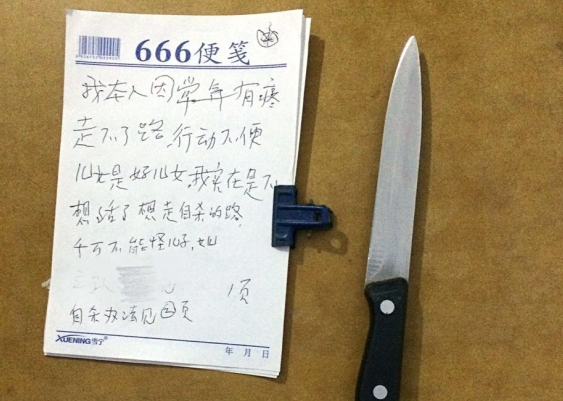 666便笺
我本人因常年有疼
走不了路,行动不便
儿女是好儿女,我实在是不
想活了想走自杀的路
千万不能怪儿子,女儿
页
自杀办法见四页
XUENING雪宁®
年 月 日